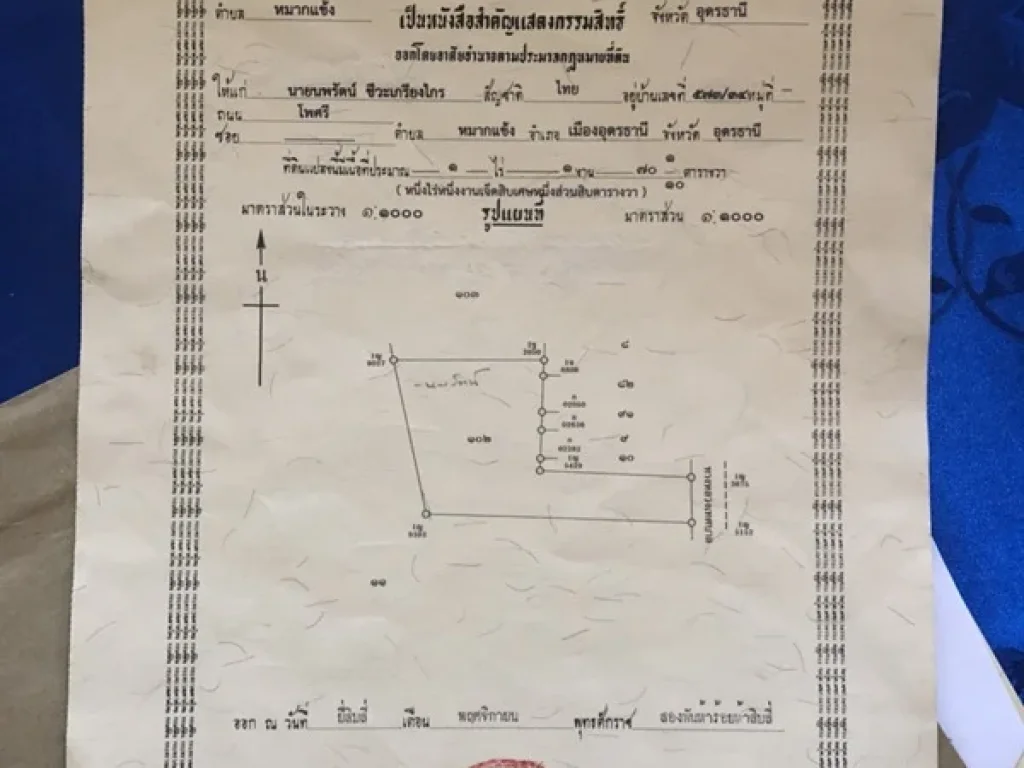 ตำบล หมากแข้ง จังหวัด อุดรธานี
เป็นหนังสือสำคัญแสดงกรรมสิทธิ์
ออกโดยอาศัยอำนาจตามประมวลกฎหมายที่ดิน
ให้แก่ นายนพรัตน์ ชีวะเกรียงไกร สัญชาติ ไทย อยู่บ้านเลขที่ ๕๗๓/๓๔ หมู่ที่ –
ถนน โพศรี
ซอย ตำบล หมากแข้ง อำเภอ เมืองอุดรธานี จังหวัด อุดรธานี
ที่ดินแปลงนี้มีเนื้อที่ประมาณ ๑ ไร่ ๑ งาน ๗๐ ๑/๑๐ ตารางวา
( หนึ่งไร่หนึ่งงานเจ็ดสิบเศษหนึ่งส่วนสิบตารางวา )
มาตราส่วนในระวาง ๑:๑๐๐๐ รูปแผนที่ มาตราส่วน ๑:๑๐๐๐
น
๑๐๓
๘
๘๒
นพรัตน์
๙๑
๑๐๒
๙
๑๐
ทางหลวงเทศบาล
๑๑
ออก ณ วันที่ ยี่สิบสี่ เดือน พฤศจิกายน พุทธศักราช สองพันห้าร้อยห้าสิบสี่